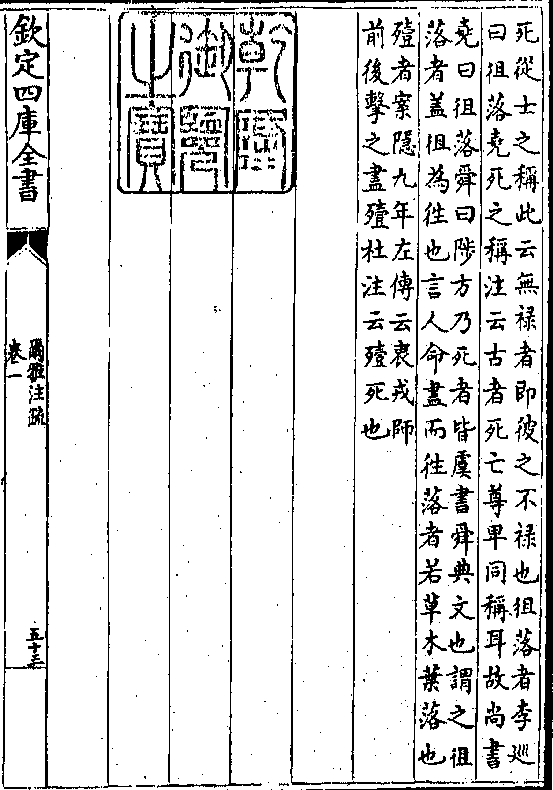 死從士之稱此云無禄者即彼之不禄也徂落者李廵
曰徂落堯死之稱注云古者死亡尊卑同稱耳故尚書
堯曰徂落舜曰陟方乃死者皆虞書舜典文也謂之徂
落者盖徂為徃也言人命盡而徃落者若草木葉落也
殪者案隠九年左傳云衷戎師
前後擊之盡殪杜注云殪死也
乾隆
御覽
之寶
欽定四庫全書
爾雅注疏
卷一
五十三